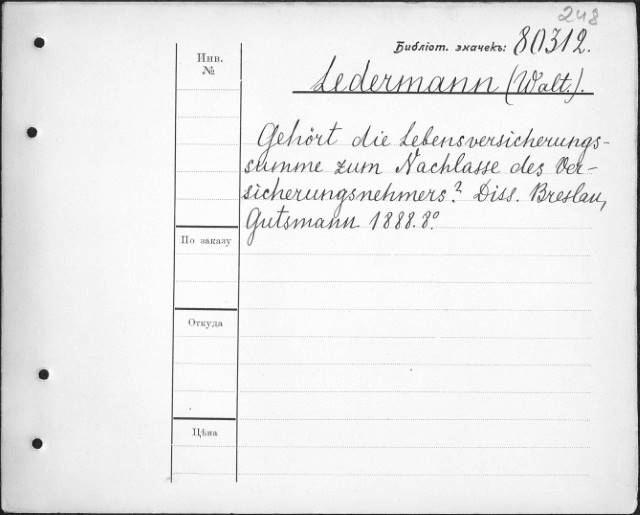 248
Библіот. значекъ: 80312.
Инв.
№
Ledermann (Walt.).
Gehört die Lebensversicherungs-
summe zum Nachlasse des Ver-
sicherungsnehmers? Diss. Breslau,
Gutsmann 1888. 8°.
По заказу
Откуда
Цѣна